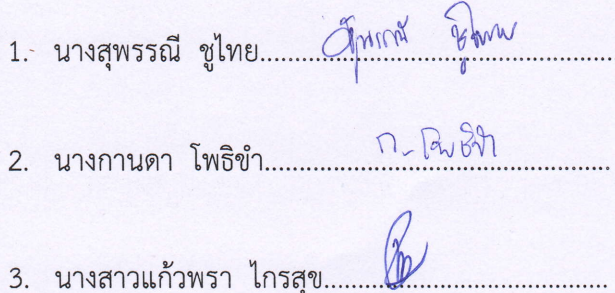 1. นางสุพรรณี ชูไทย.................... สุพรรณี ชูไทย
2. นางกานดา โพธิขำ.................... ก. โพธิขำ
3. นางสาวแก้วพรา ไกรสุข....................